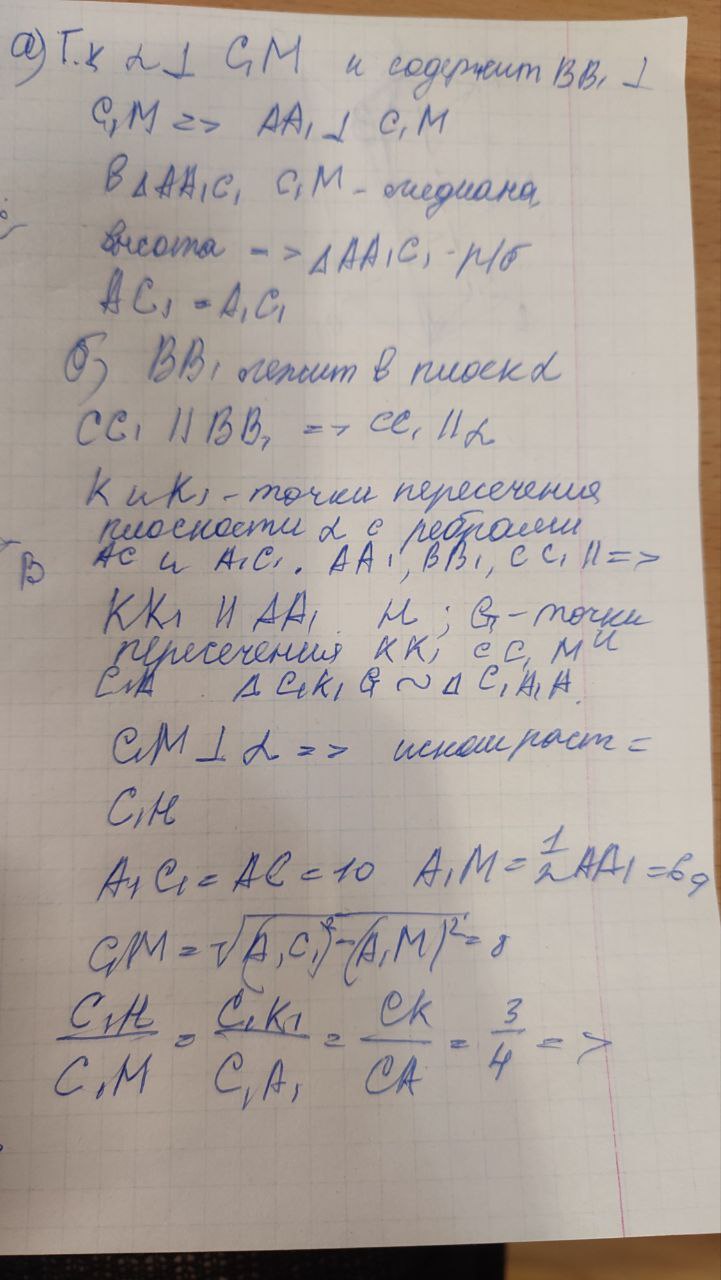 а) Т.к α ⊥ C₁M и содержит BB₁ ⊥
C₁M => AA₁ ⊥ C₁M
В △AA₁C₁ C₁M - медиана,
высота => △AA₁C₁ - р/б
AC₁ = A₁C₁
б) BB₁ лежит в плоск α
CC₁ || BB₁ => CC₁ || α
K и K₁ - точки пересечения
плоскости α с ребрами
AC и A₁C₁. AA₁, BB₁, CC₁ || =>
В
KK₁ || AA₁ H ; G - точки
пересечения KK₁ с C₁M и
C₁A △C₁K₁G ~ △C₁A₁A.
C₁M ⊥ α => иском раст =
C₁H
A₁C₁ = AC = 10 A₁M = 1/2 AA₁ = 6,
C₁M = √(A₁C₁)² - (A₁M)² = 8
C₁H/C₁M = C₁K₁/C₁A₁ = CK/CA = 3/4 =>